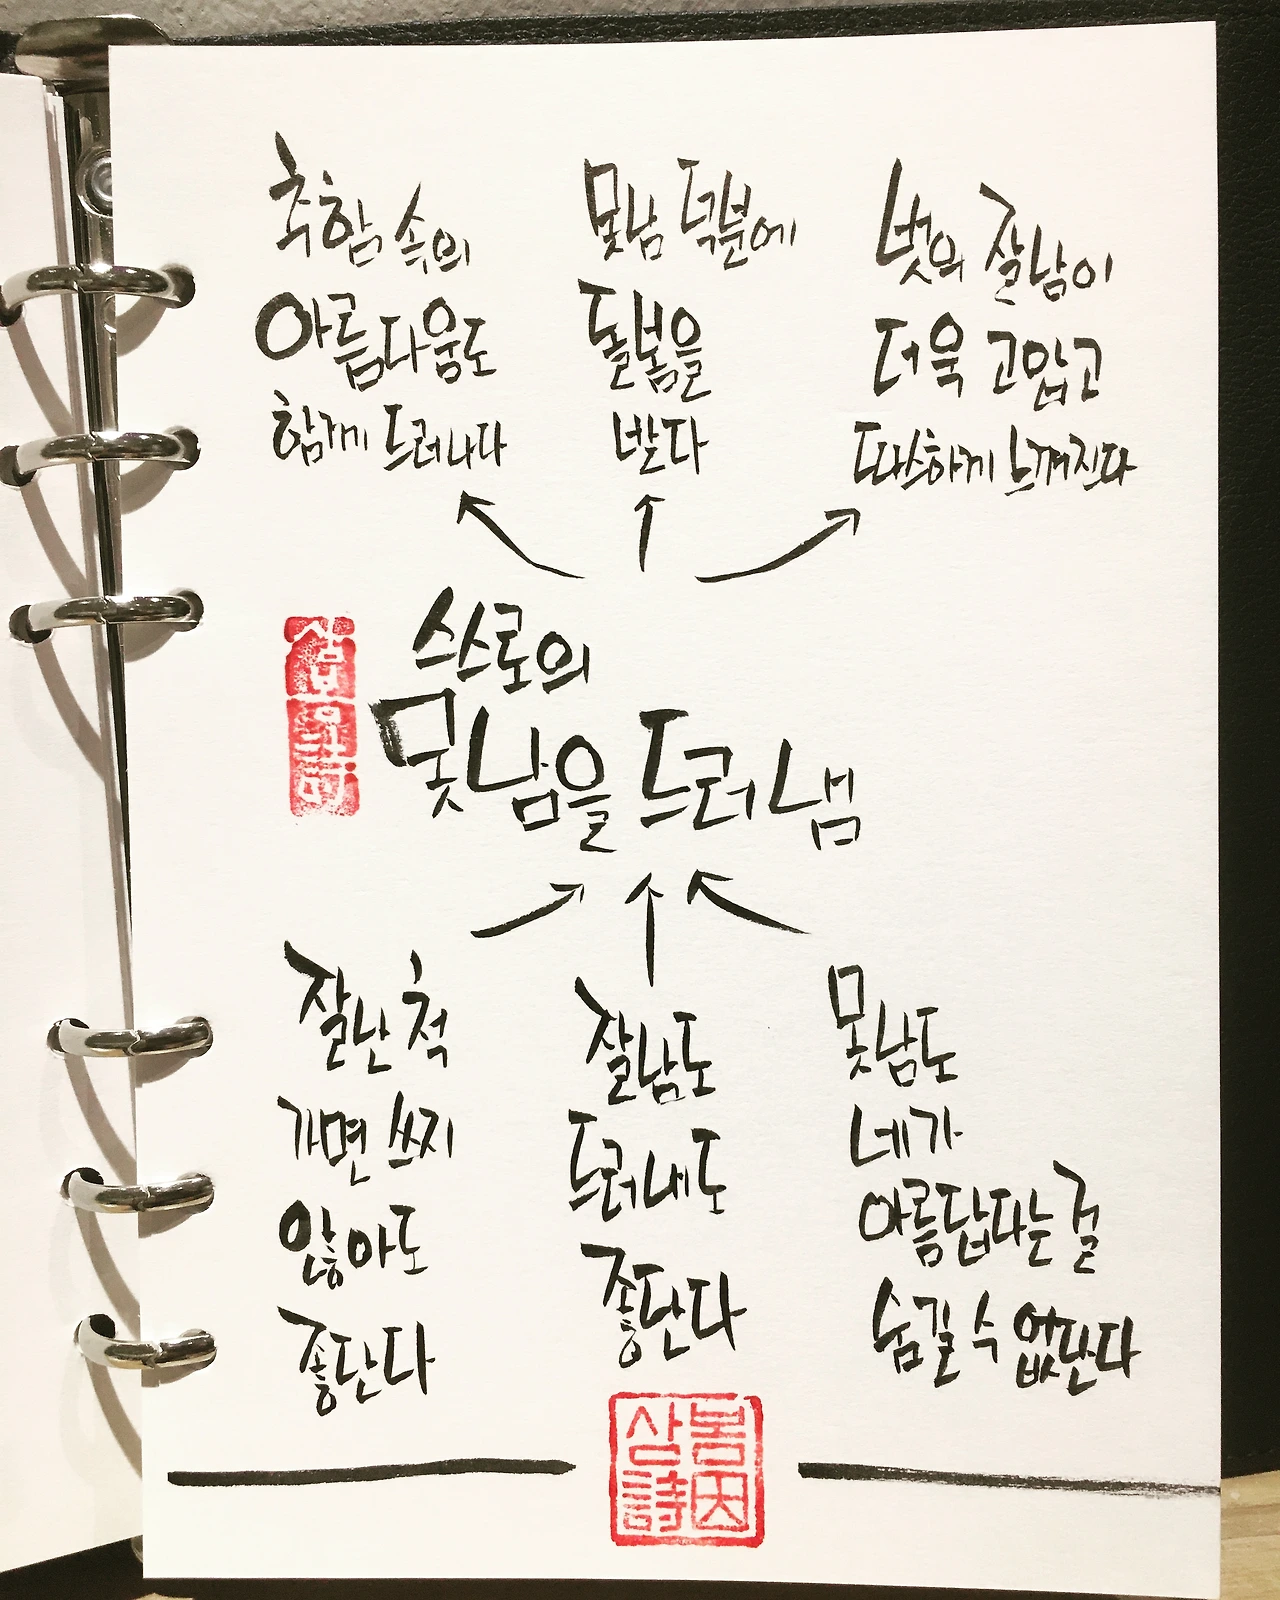 추함 속의
아름다움도
함께 드러나다
못남 덕분에
돌봄을
받다
벗의 잘남이
더욱 고맙고
따스하게 느껴진다
스스로의
못남을 드러냄
잘난 척
가면 쓰지
않아도
좋단다
잘남도
드러내도
좋단다
못남도
네가
아름답다는 걸
숨길 수 없단다
삼봄
詩因